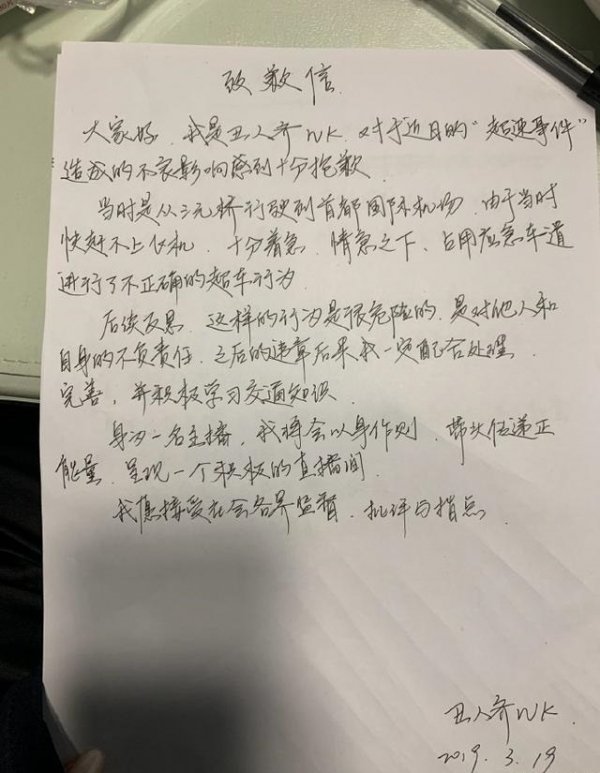 致歉信
大家好，我是丑人齐WK，对于近日的“超速事件”
造成的不良影响感到十分抱歉
当时是从三元桥行驶到首都国际机场，由于当时
快赶不上飞机，十分着急，情急之下，占用应急车道
进行了不正确的超车行为
后续反思，这样的行为是很危险的，是对他人和
自身的不负责任，之后的违章后果我一定配合处理
完善，并积极学习交通知识
身为一名主播，我将会以身作则，带头传递正
能量，呈现一个积极的直播间
我愿接受社会各界监督，批评与指点
丑人齐WK
2019.3.19